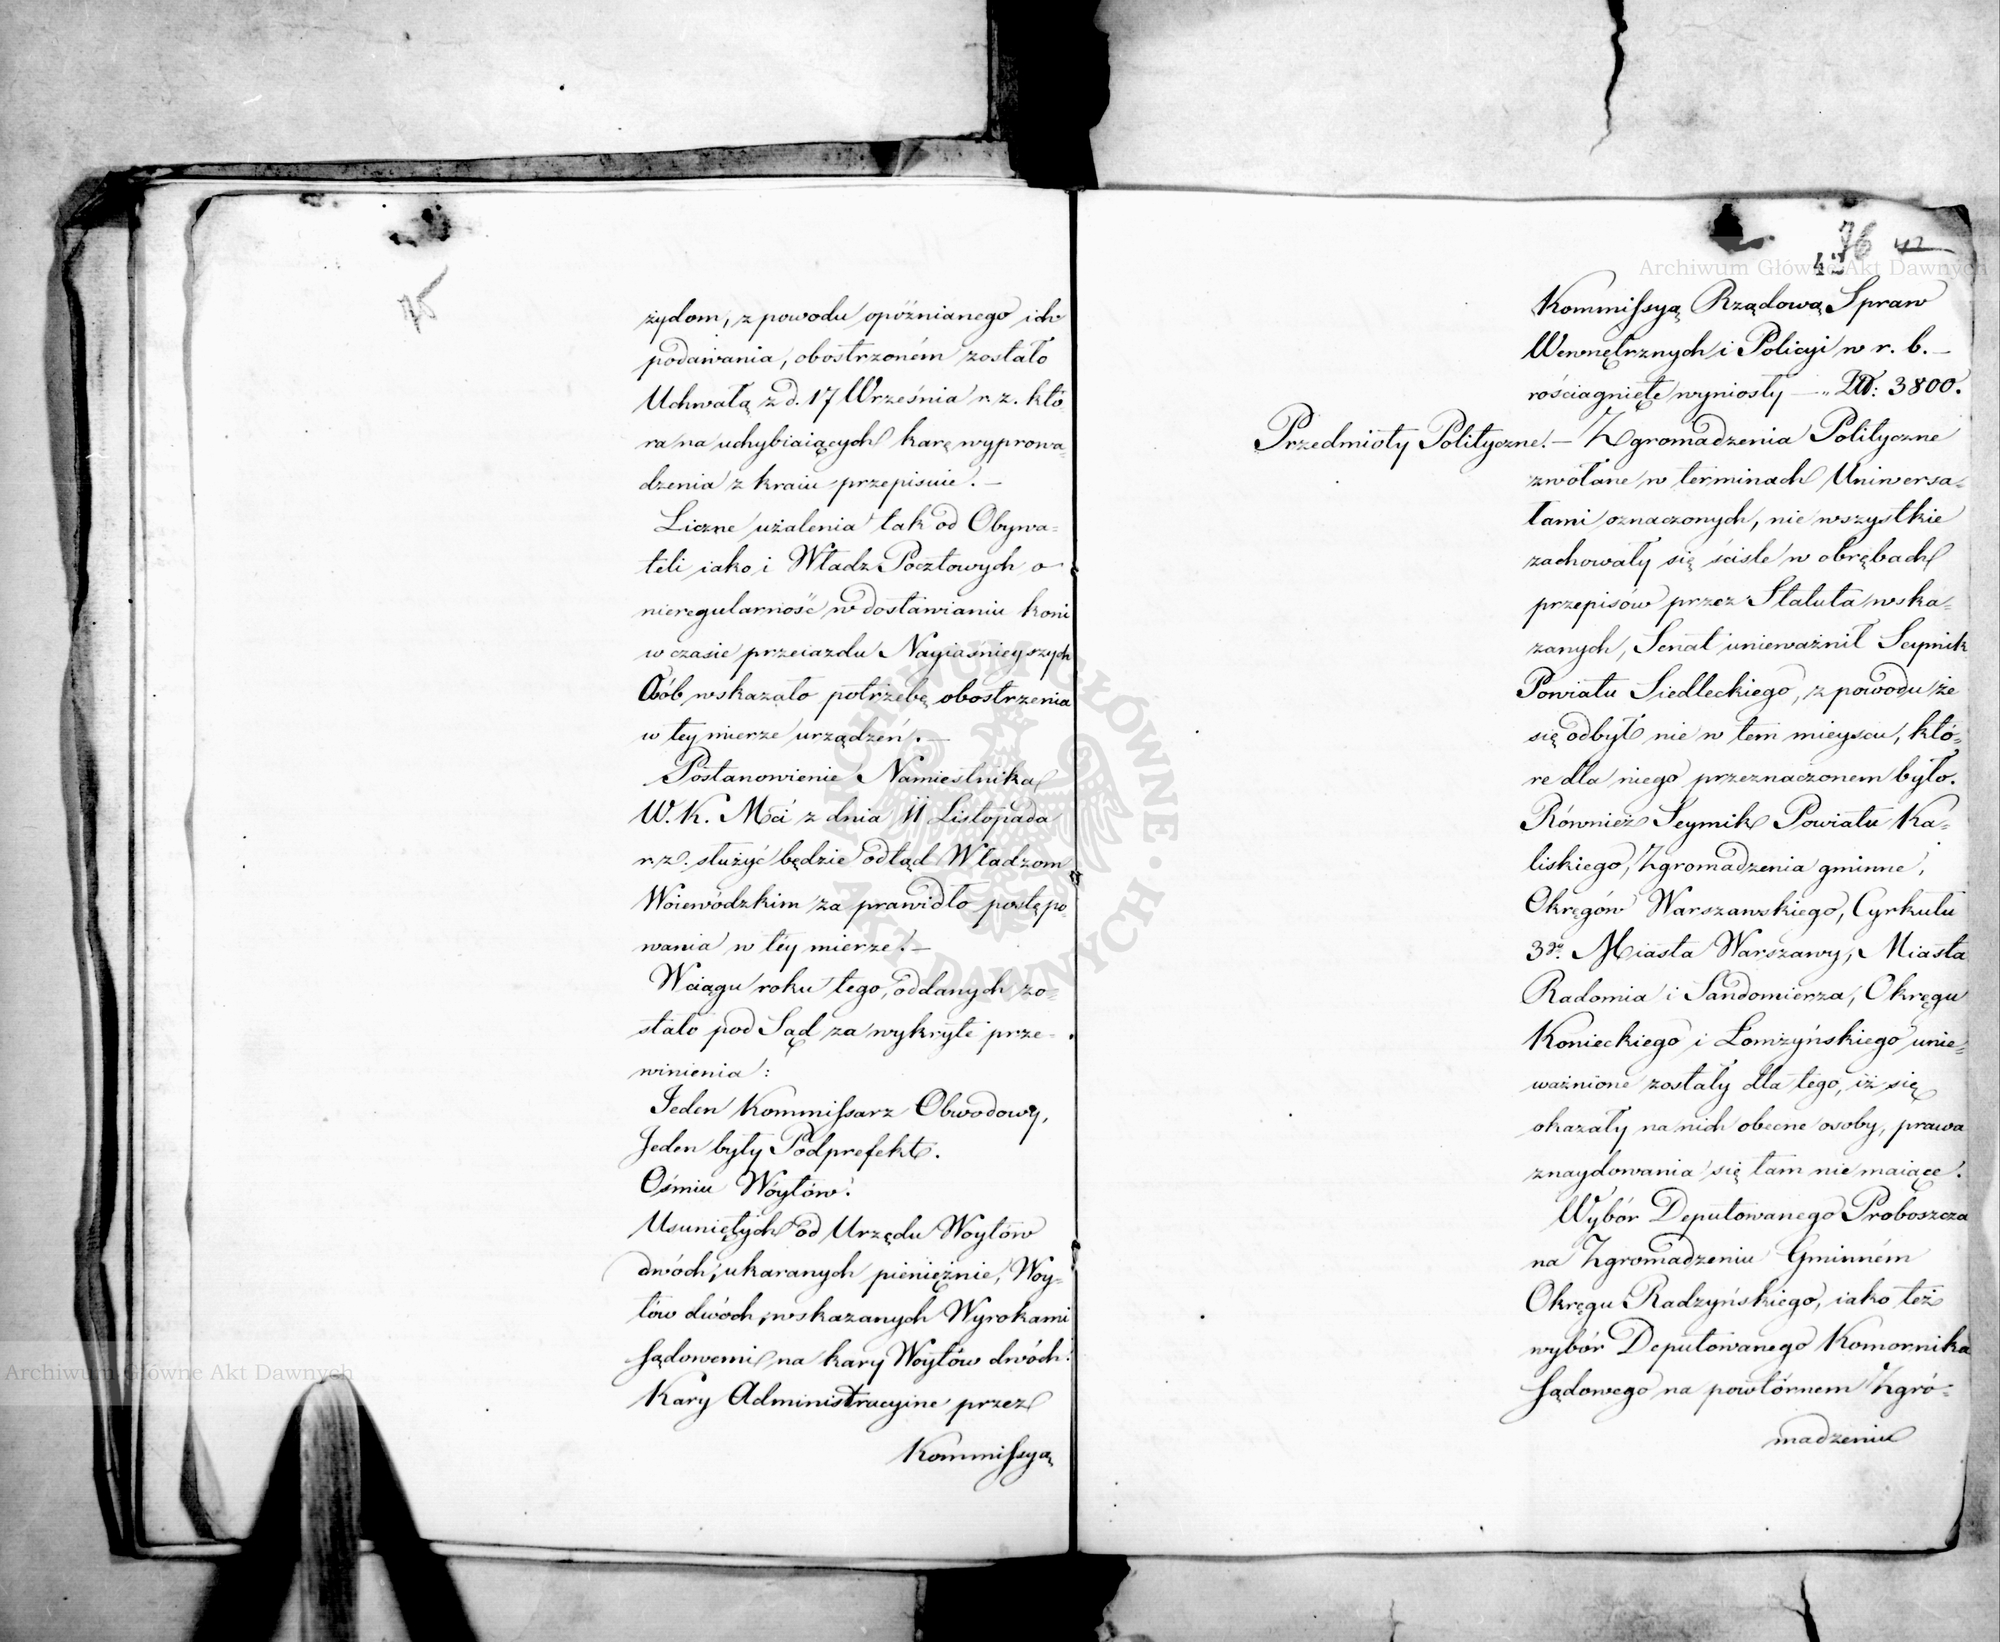 75
żydom, z powodu opóźnianego ich
podawania, obostrzoném zostało
Uchwałą z d. 17 Września r. z. któ
ra na uchybiaiących karę wyprowa-
dzenia z kraiu przepisuie. —
Liczne użalenia tak od Obywa-
teli iako i Władz Pocztowych o
nieregularność w dostawianiu koni
w czasie przeiazdu Nayiaśnieyszych
Osób wskazało potrzebę obostrzenia
w tey mierze urządzeń. —
Postanowienie Namiestnika
W. K. Mci z dnia 11 Listopada
r. z. służyć będzie odtąd Władzom
Woiewódzkim za prawidło postępo-
wania w téy mierze. —
W ciągu roku tego, oddanych zo-
stało pod Sąd za wykryte prze-
winienia:
Jeden Kommissarz Obwodowy,
Jeden były Podprefekt.
Ośmiu Wóytów.
Usuniętych od Urzędu Woytów
dwóch, ukaranych pieniężnie, Woy-
tów dwóch, wskazanych Wyrokami
sądowemi na kary Woytów dwóch.
Kary Administracyine przez
Kommissyą
76 42
42
Kommissyą Rządową Spraw
Wewnętrznych i Policyi w r. b. —
rościągnięte wyniosły — „ Złł: 3800.
Przedmioty Polityczne. — Zgromadzenia Polityczne
zwołane w terminach Uniwersa-
łami oznaczonych, nie wszystkie
zachowały się ściśle w obrębach
przepisów przez Statuta wska-
zanych, Senat unieważnił Seymik
Powiatu Siedleckiego, z powodu że
się odbył nie w tem mieyscu, któ-
re dla niego przeznaczonem było.
Również Seymik Powiatu Ka-
liskiego, Zgromadzenia gminne,
Okręgów Warszawskiego, Cyrkułu
3go. Miasta Warszawy, Miasta
Radomia i Sandomierza, Okręgu
Konieckiego i Łomżyńskiego unie-
ważnione zostały dla tego, iż się
okazały na nich obecne osoby, prawa
znaydowania się tam nie maiące.
Wybór Deputowanego Proboszcza
na Zgromadzeniu Gminném
Okręgu Radzyńskiego, iako też
wybór Deputowanego Komornika
sądowego na powtórnem Zgro-
madzeniu
Archiwum Główne Akt Dawnych
Archiwum Główne Akt Dawnych
ARCHIWUM GŁÓWNE · AKT DAWNYCH ·